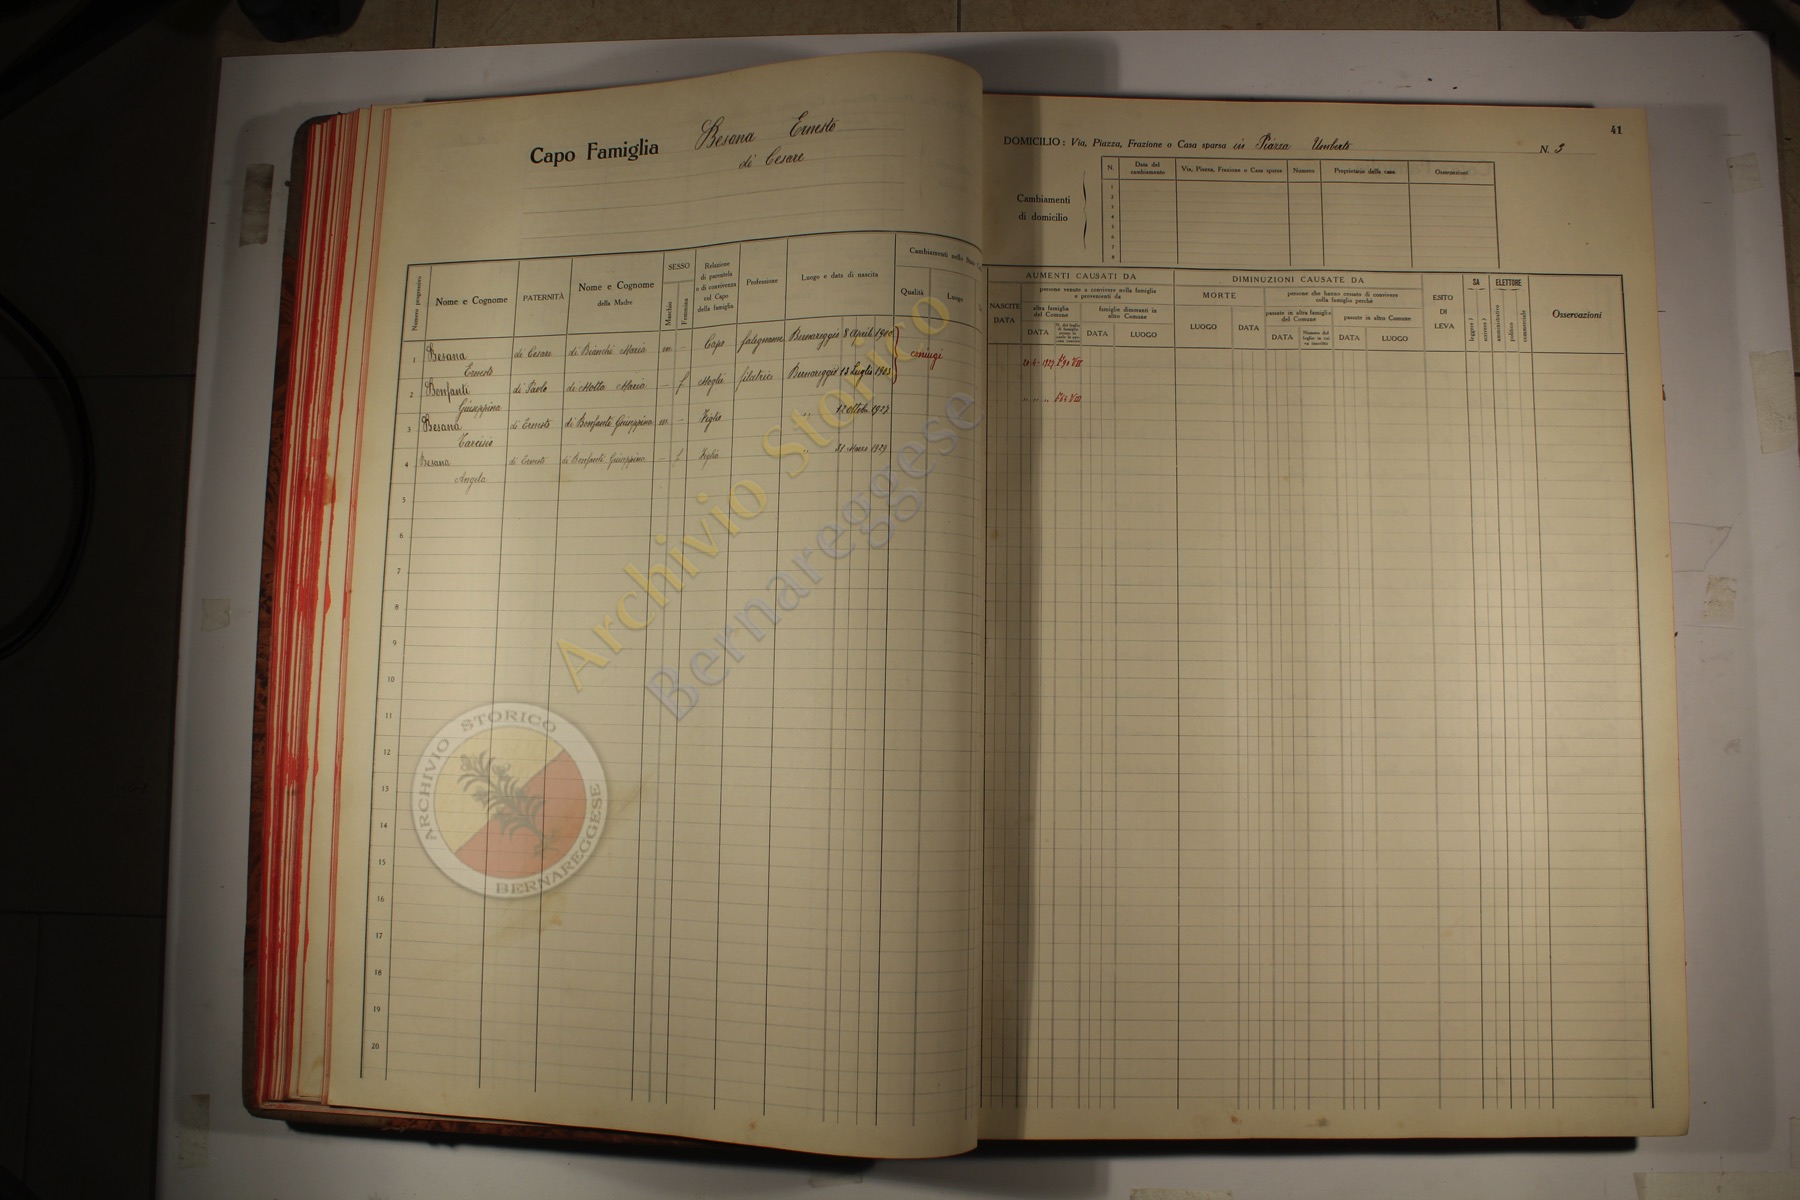 41
Capo Famiglia Besana Ernesto
di Cesare
DOMICILIO: Via, Piazza, Frazione o Casa sparsa in Piazza Umberto N. 3
Cambiamenti di domicilio
N. Data del cambiamento Via, Piazza, Frazione o Casa sparsa Numero Proprietario della casa Osservazioni
1
2
3
4
5
6
7
8
Numero progressivo Nome e Cognome PATERNITÀ Nome e Cognome della Madre SESSO Maschio Femmina Relazione di parentela o di convivenza col Capo della famiglia Professione Luogo e data di nascita Cambiamenti nello Qualità Luogo
1 Besana Ernesto di Cesare di Bianchi Maria m - Capo falegname Bernareggio 8 Aprile 1900 coniugi
2 Bonfanti Giuseppina di Paolo di Motta Maria - f Moglie filatrice Bernareggio 13 Luglio 1903
3 Besana Tarcisio di Ernesto di Bonfanti Giuseppina m - Figlio " 12 Ottob. 1927
4 Besana Angela di Ernesto di Bonfanti Giuseppina - f Figlia " 31 Marzo 1929
5
6
7
8
9
10
11
12
13
14
15
16
17
18
19
20
AUMENTI CAUSATI DA
NASCITE DATA
persone venute a convivere nella famiglia e provenienti da
altra famiglia del Comune
famiglie dimoranti in altro Comune
DATA
DATA LUOGO
DIMINUZIONI CAUSATE DA
MORTE
LUOGO DATA
persone che hanno cessato di convivere colla famiglia perchè
passate in altra famiglia del Comune
passate in altro Comune
DATA Numero del foglio in cui va inscritto
DATA LUOGO
ESITO DI LEVA
SA
leggere ?
scrivere ?
ELETTORE
amministrativo
politico
commerciale
Osservazioni
1927
" " "
Archivio Storico
Bernareggese
ARCHIVIO STORICO
BERNAREGGESE